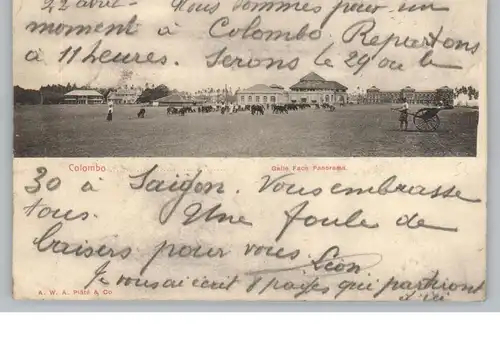 22 avril. Nous sommes pour un
moment à Colombo. Repartons
à 11 heures. Serons le 29 ou le
Colombo
Galle Face Panorama.
30 à Saïgon. Vous embrasse
tous. Une foule de
baisers pour vous
Léon
Je vous ai écrit 8 pages qui partiront
d'ici
A. W. A. Plâté & Co